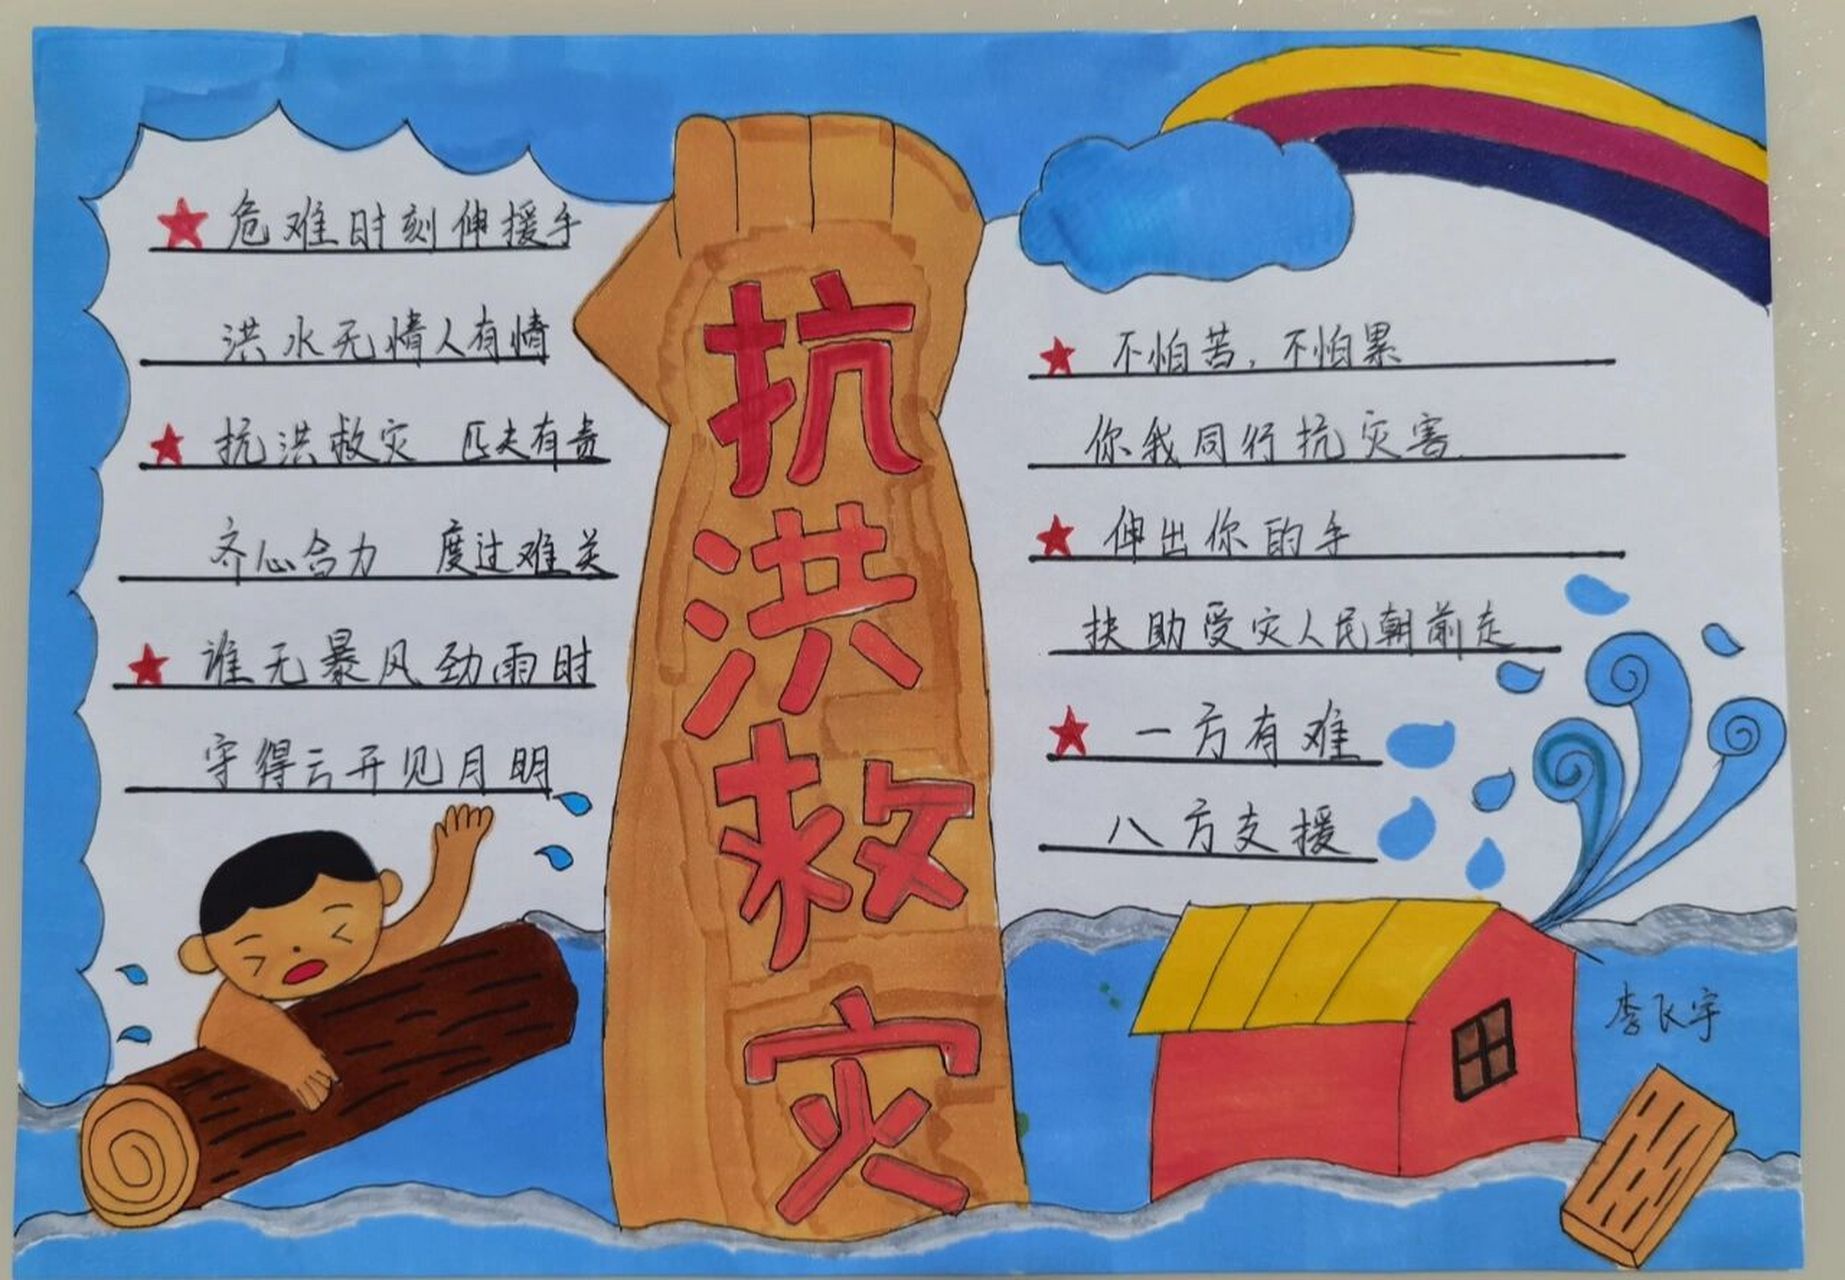 危难时刻伸援手
洪水无情人有情
抗洪救灾 匹夫有责
齐心合力 度过难关
谁无暴风劲雨时
守得云开见月明
抗洪救灾
不怕苦,不怕累
你我同行抗灾害
伸出你的手
扶助受灾人民朝前走
一方有难
八方支援
李飞宇